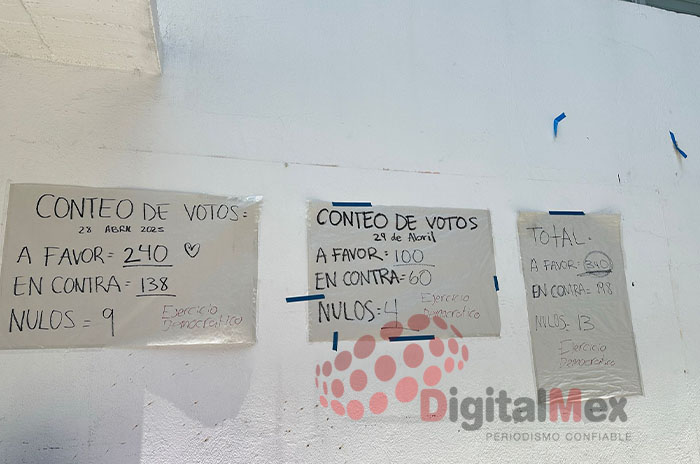 CONTEO DE VOTOS:
28 ABRIL 2025
A FAVOR = 240 ♡
EN CONTRA = 138
NULOS = 9
Ejercicio
Democratico
CONTEO DE VOTOS
29 de Abril
A FAVOR: 100
EN CONTRA: 60
NULOS: 4
Ejercicio
Democratico
TOTAL.
A FAVOR: 340
EN CONTRA: 198
NULOS: 13
Ejercicio
Democratico
DigitalMex
PERIODISMO CONFIABLE